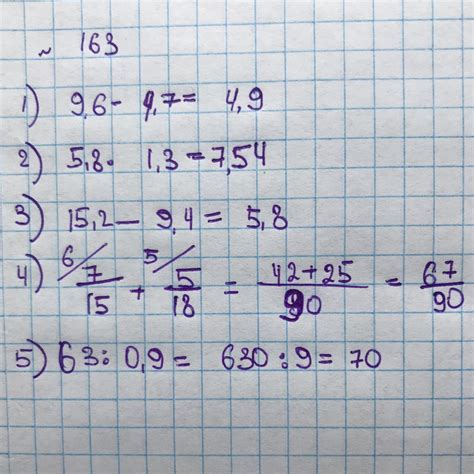 ~ 163
1) 9,6 - 4,7 = 4,9
2) 5,8 · 1,3 = 7,54
3) 15,2 — 9,4 = 5,8
4) 6/ 7/15 + 5/ 5/18 = 42+25/90 = 67/90
5) 63 : 0,9 = 630 : 9 = 70